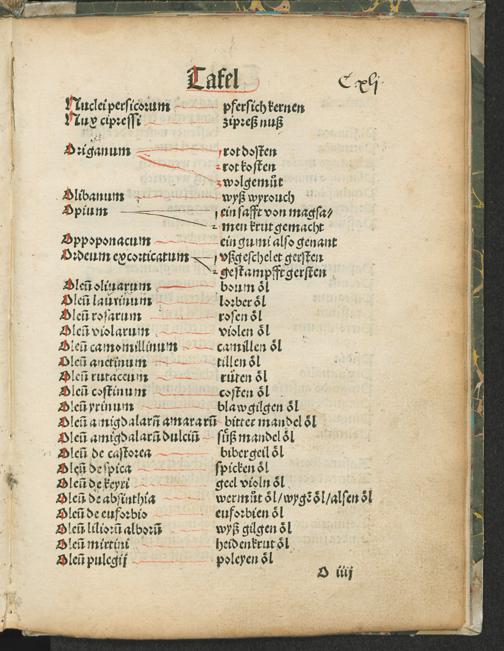 Tafel
C xlj
Nuclei persicorum pfersich kernen
Nux cipressi zipreß nuß
Origanum rot dosten
rot kosten
wolgemůt
Olibanum wyß wyrouch
Opium ein safft von magsa/
men krut gemacht
Oppoponacum ein gumi also genant
Ordeum excorticatum vßgeschelet gersten
gestampfft gersten
Oleū oliuarum boum öl
Oleū laurinum lorber öl
Oleū rosarum rosen öl
Oleū violarum violen öl
Oleū camomillinum camillen öl
Oleū anetinum tillen öl
Oleū rutaceum rüten öl
Oleū costinum costen öl
Oleū yrinum blaw gilgen öl
Oleū amigdalarū amararū bitter mandel öl
Oleū amigdalarū dulciū süß mandel öl
Oleū de castorea bibergeil öl
Oleū de spica spicken öl
Oleū de keyri geel violn öl
Oleū de absinthia wermůt öl/wygē öl/alsen öl
Oleū de euforbio euforbien öl
Oleū liliorū alborū wyß gilgen öl
Oleū mirtini heidenkrut öl
Oleū pulegij poleyen öl
O iiij